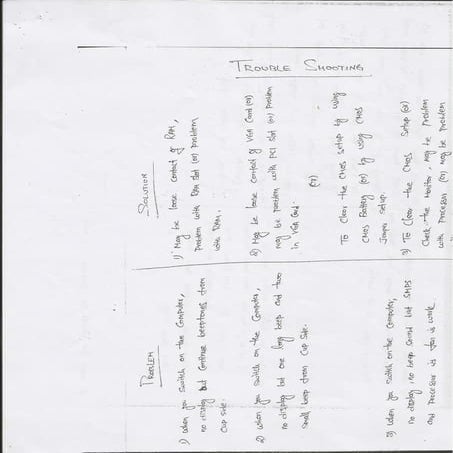 TROUBLE SHOOTING
PROBLEM
SOLUTION
1) When you switch on the Computer,
no display but continue beep tones from
CUP side.
1) May be loose contact of RAM,
problem with RAM slot (or) problem
with RAM.
2) When you switch on the Computer,
no display but one long beep and two
small beep from CUP side.
2) May be loose contact of VGA Card (or)
may be problem with PCI slot (or) problem
in VGA Card
(or)
To Clear the CMOS setup by using
CMOS Battery (or) by using CMOS
Jumper setup.
3) When you switch on the Computer,
no display, no beep sound but SMPS
and Processor is work
3) To Clear the CMOS Setup (or)
Check the Monitor, may be problem
with Processor (or) may be problem